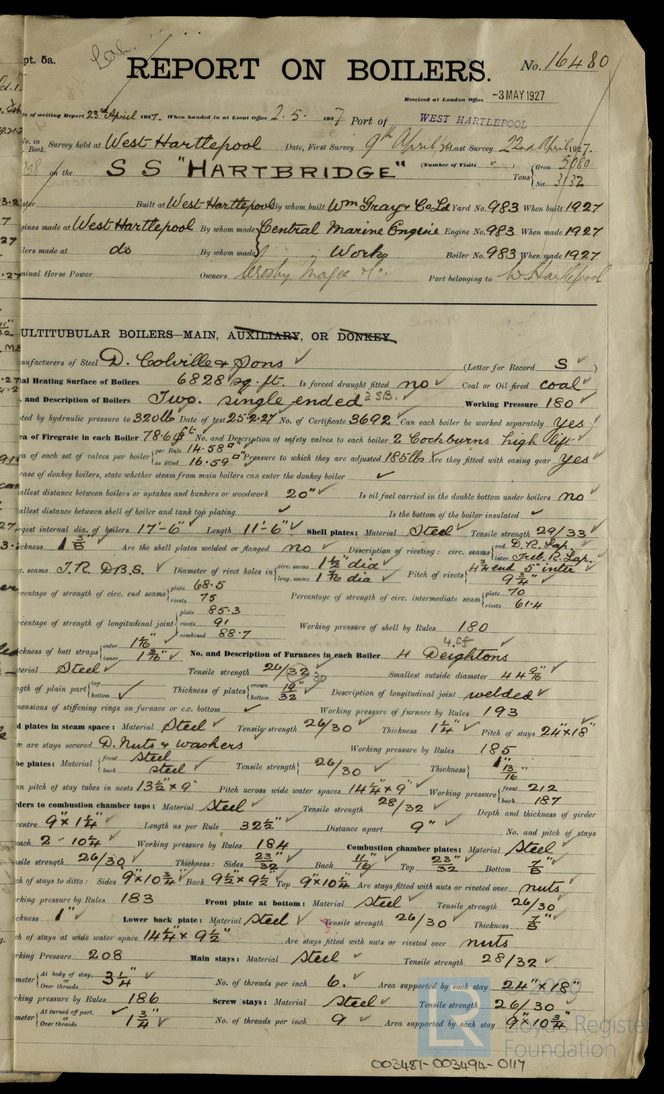 pt. 5a.
REPORT ON BOILERS.
No. 16480
Received at London Office -3 MAY 1927
te of writing Report 23rd April 1927. When handed in at Local Office 2.5. 1927 Port of WEST HARTLEPOOL
No. in Book. Survey held at West Hartlepool Date, First Survey 9th April Last Survey 22nd April 1927.
on the SS "HARTBRIDGE" (Number of Visits ) Tons {Gross 5080 Net 3132
Built at West Hartlepool By whom built Wm Gray & Co Ld Yard No. 983 When built 1927
gines made at West Hartlepool By whom made Central Marine Engine Engine No. 983 When made 1927
lers made at do By whom made Works Boiler No. 983 When made 1927
minal Horse Power Owners Crosby Magee & Co. Port belonging to W. Hartlepool
ULTITUBULAR BOILERS—MAIN, AUXILIARY, OR DONKEY.
nufacturers of Steel D. Colville & Sons (Letter for Record S )
al Heating Surface of Boilers 6828 sq. ft. Is forced draught fitted no Coal or Oil fired coal
. and Description of Boilers Two single ended 2 S.B. Working Pressure 180
ted by hydraulic pressure to 320 lb Date of test 25-2-27 No. of Certificate 3692 Can each boiler be worked separately yes
ea of Firegrate in each Boiler 78.6 No. and Description of safety valves to each boiler 2 Cockburns high lift
a of each set of valves per boiler {per Rule 14.58 as fitted 16.59 Pressure to which they are adjusted 185 lb Are they fitted with easing gear yes
case of donkey boilers, state whether steam from main boilers can enter the donkey boiler
allest distance between boilers or uptakes and bunkers or woodwork 20" Is oil fuel carried in the double bottom under boilers no
allest distance between shell of boiler and tank top plating Is the bottom of the boiler insulated
gest internal dia. of boilers 17'-6" Length 11'-6" Shell plates: Material Steel Tensile strength 29/33
ickness 1 3/8 Are the shell plates welded or flanged no Description of riveting: circ. seams {end D.R. Lap. inter. Treb. R. Lap.
g. seams T.R. D.B.S. Diameter of rivet holes in {circ. seams 1 1/2" dia long. seams 1 7/16 dia Pitch of rivets {4 3/4 end 5" inter 9 3/4"
rcentage of strength of circ. end seams {plate 68.5 rivets 75 Percentage of strength of circ. intermediate seam {plate 70 rivets 61.4
rcentage of strength of longitudinal joint {plate 85.3 rivets 91 combined 88.7 Working pressure of shell by Rules 180
ickness of butt straps {outer 1 1/16" inner 1 3/16" No. and Description of Furnaces in each Boiler 4 Deightons
terial Steel Tensile strength 26/30 Smallest outside diameter 44 9/16
ngth of plain part {top bottom Thickness of plates {crown bottom 19/32 Description of longitudinal joint welded
mensions of stiffening rings on furnace or c.c. bottom Working pressure of furnace by Rules 193
d plates in steam space: Material Steel Tensile strength 26/30 Thickness 1 1/4" Pitch of stays 24" x 18"
w are stays secured D. Nuts & washers Working pressure by Rules 185
be plates: Material {front Steel back steel Tensile strength 26/30 Thickness {1" 13/16
an pitch of stay tubes in nests 13 1/2 x 9" Pitch across wide water spaces 14 1/4 x 9" Working pressure {front 212 back 187
ders to combustion chamber tops: Material Steel Tensile strength 28/32 Depth and thickness of girder
centre 9" x 1 1/4" Length as per Rule 32 1/2" Distance apart 9" No. and pitch of stays
each 2 - 10 3/4 Working pressure by Rules 184 Combustion chamber plates: Material Steel
nsile strength 26/30 Thickness: Sides 23/32" Back 11/16" Top 23/32" Bottom 7/8"
ch of stays to ditto: Sides 9" x 10 3/4 Back 9 1/2 x 9 1/2 Top 9" x 10 3/4 Are stays fitted with nuts or riveted over nuts
rking pressure by Rules 183 Front plate at bottom: Material Steel Tensile strength 26/30
ckness 1" Lower back plate: Material Steel Tensile strength 26/30 Thickness 7/8"
ch of stays at wide water space 14 1/4 x 9 1/2" Are stays fitted with nuts or riveted over nuts
rking Pressure 208 Main stays: Material Steel Tensile strength 28/32
meter {At body of stay, or Over threads 3 1/4" No. of threads per inch 6. Area supported by each stay 24" x 18"
rking pressure by Rules 186 Screw stays: Material Steel Tensile strength 26/30
meter {At turned off part, or Over threads 1 3/4" No. of threads per inch 9 Area supported by each stay 9" x 10 3/4"
LR
Lloyd's Registe
Foundation
003487-003494-0117